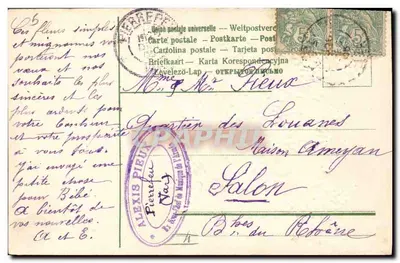 5
Ces fleurs simples
et mignonnes vous
portent nos
vœux et nos
souhaits les plus
sincères et les
plus ardents pour
votre bonheur
et votre prospérité
à vous tous.
J'ai envoyé une
petite chose
pour Bébé
A bientôt de
vos nouvelles.
A et E.
PIERREFEU
Carte postale universelle - Weltpostverein
Carte postale - Postkarte - Post
Cartolina postale - Tarjeta postal
Briefkaart - Karta Korespondencyjna
Levelező-Lap - ОТКРЫТОЕ ПИСЬМО
Mme & Mr Pieux
Quartier des Douanes
Maison Ameyan
Salon
Bhes du Rhône
ALEXIS PIEUX
Pierrefeu
Var